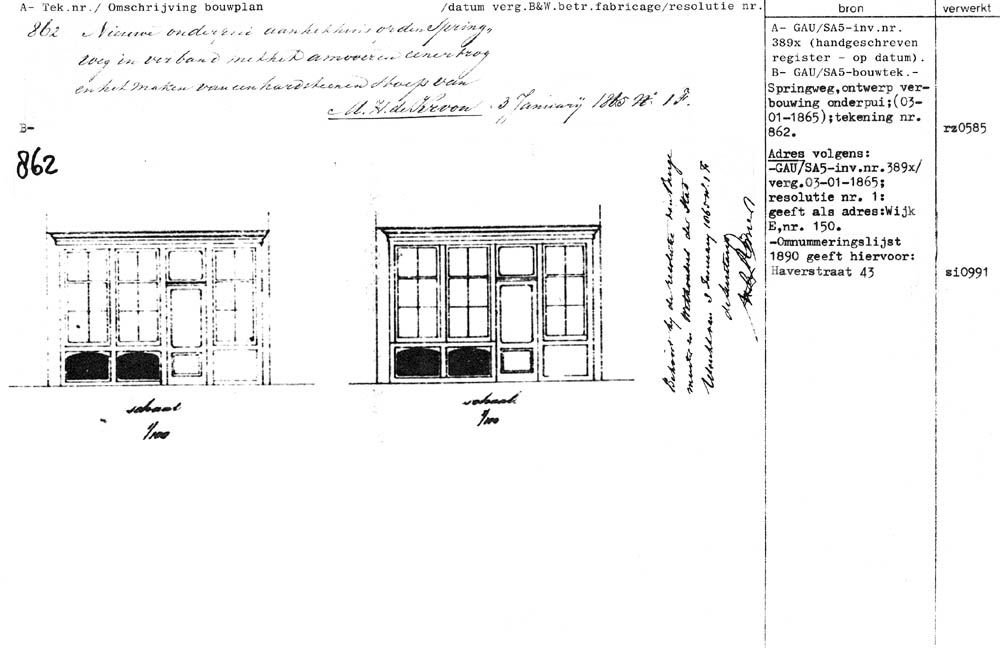 A- Tek.nr./ Omschrijving bouwplan /datum verg.B&W.betr.fabricage/resolutie nr.
862 Nieuwe onderpui aan het huis op den Spring-
weg in verband met het amoveren eener trog
en het maken van een hardsteenen stoep van
M. H. de 3 Januarij 1865 No. 1 F.
B-
862
schaal
1/100
schaal
1/100
Behoort bij de resolutie van Burge
meester en Wethouders der Stad
Utrecht van 3 January 1865 No. 1 F
de Secretaris
bron
A- GAU/SA5-inv.nr.
389x (handgeschreven
register - op datum).
B- GAU/SA5-bouwtek.-
Springweg,ontwerp ver-
bouwing onderpui;(03-
01-1865);tekening nr.
862.
Adres volgens:
-GAU/SA5-inv.nr.389x/
verg.03-01-1865;
resolutie nr. 1:
geeft als adres:Wijk
E,nr. 150.
-Omnummeringslijst
1890 geeft hiervoor:
Haverstraat 43
verwerkt
rz0585
si0991